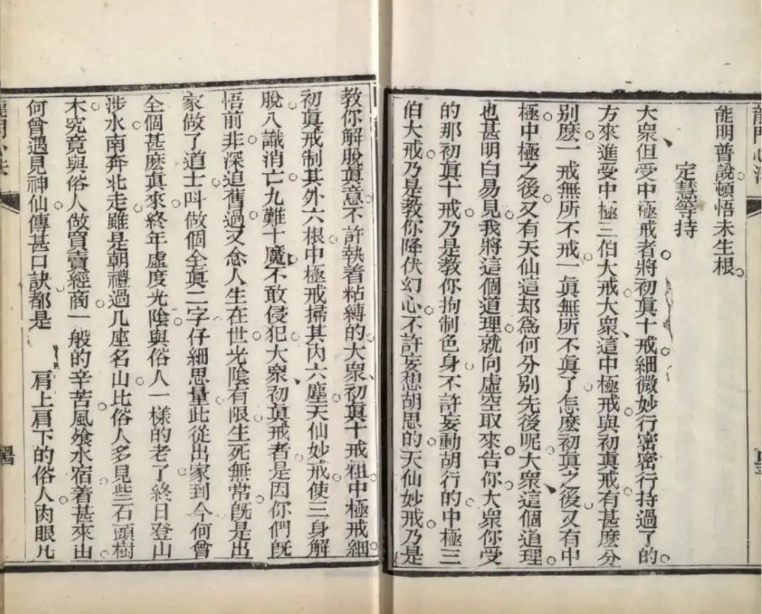 能明普說頓悟未生根
定慧等持
大衆但受中極戒者將初眞十戒細微妙行密密行持過了的
方來進受中極三伯大戒大衆這中極戒與初眞戒有甚麽分
別麽一戒無所不戒一眞無所不眞了怎麽初眞之後又有中
極中極之後又有天仙這却爲何分別先後呢大衆這個道理
也甚明白易見我將這個道理就向虛空取來告你大衆你受
的那初眞十戒乃是教你拘制色身不許妄動胡行的中極三
伯大戒乃是教你降伏幻心不許妄想胡思的天仙妙戒乃是
教你解脫眞意不許執着粘縛的大衆初眞十戒粗中極戒細
初眞戒制其外六根中極戒掃其內六塵天仙妙戒使三身解
脫八識消亡九難十魔不敢侵犯大衆初眞戒者是因你們旣
悟前非深追舊過又念人生在世光陰有限生死無常旣是出
家做了道士呌做個全眞二字仔細思量此從出家到今何曾
全個甚麽眞來終年虛度光陰與俗人一樣的老了終日登山
涉水南奔北走雖是朝禮過几座名山比俗人多見些石頭樹
木究竟與俗人做買賣經商一般的辛苦風飡水宿着甚來由
何曾遇見神仙傳甚口訣都是 肩上肩下的俗人肉眼凡
龍門心法